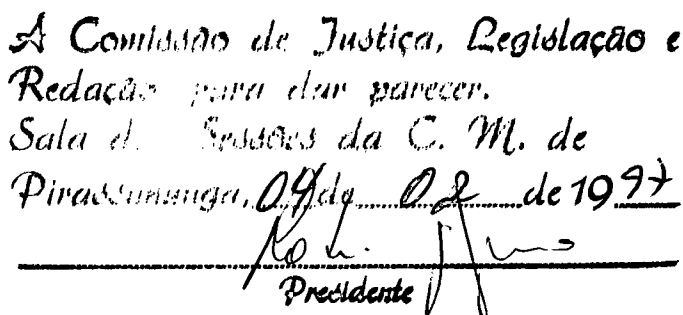 A Comissão de Justiça, Legislação e
Redação para dar parecer.
Sala d. Sessões da C. M. de
Pirassununga, 04 de 02 de 1997
Presidente